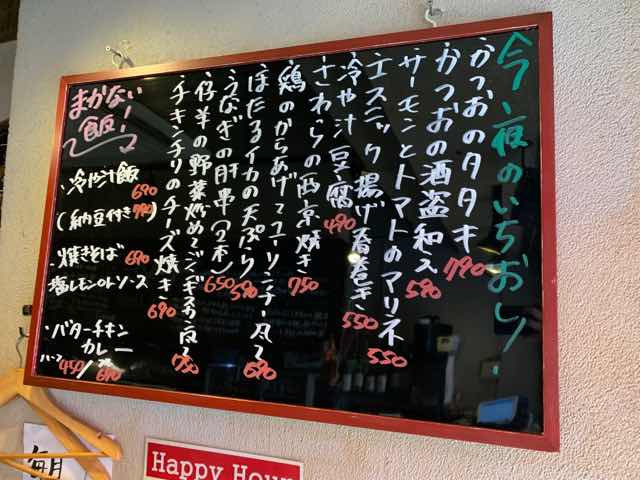 今夜のいちおし!
・かつおのタタキ 790
・かつおの酒盗和え 590
・サーモンとトマトのマリネ 550
・エスニック揚げ春巻き 550
・冷や汁豆腐 490
・さわらの西京焼き 750
・鶏のからあげ〜ユーリンチー風〜 690
・ほたるイカの天ぷら 590
・うなぎの肝串(2本) 650
・仔羊の野菜炒め〜ジンギスカン風〜 750
・チキンチリのチーズ焼き 690
まかない飯!
・冷や汁飯 690
(納豆付き 790)
・焼きそば 690
塩レモンorソース
・バターチキン
カレー
ハーフ 450/
690
毎月
Happy Hour